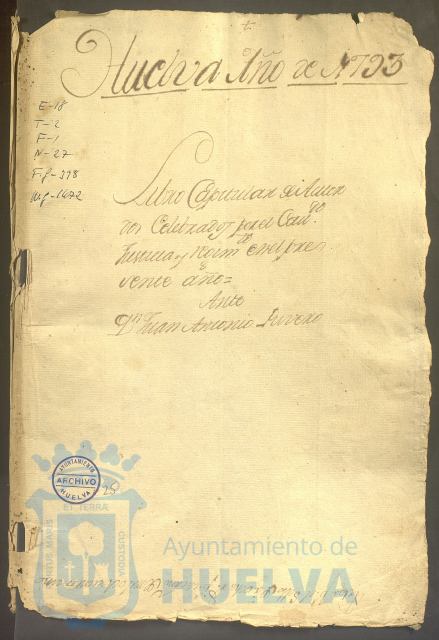 t
Huelva Año de 1793
E-18
T-2
F-1
N-27
Libro Capitular de Acuer
dos Celebrados por el Con.
Justicia y Regim.to en el pre
sente año=
Ante
Dn Juan Antonio
AYUNTAMIENTO
ARCHIVO
HUELVA
28
ET TERRÆ
PORTUS MARIS
CUSTODIA
Ayuntamiento de
HUELVA